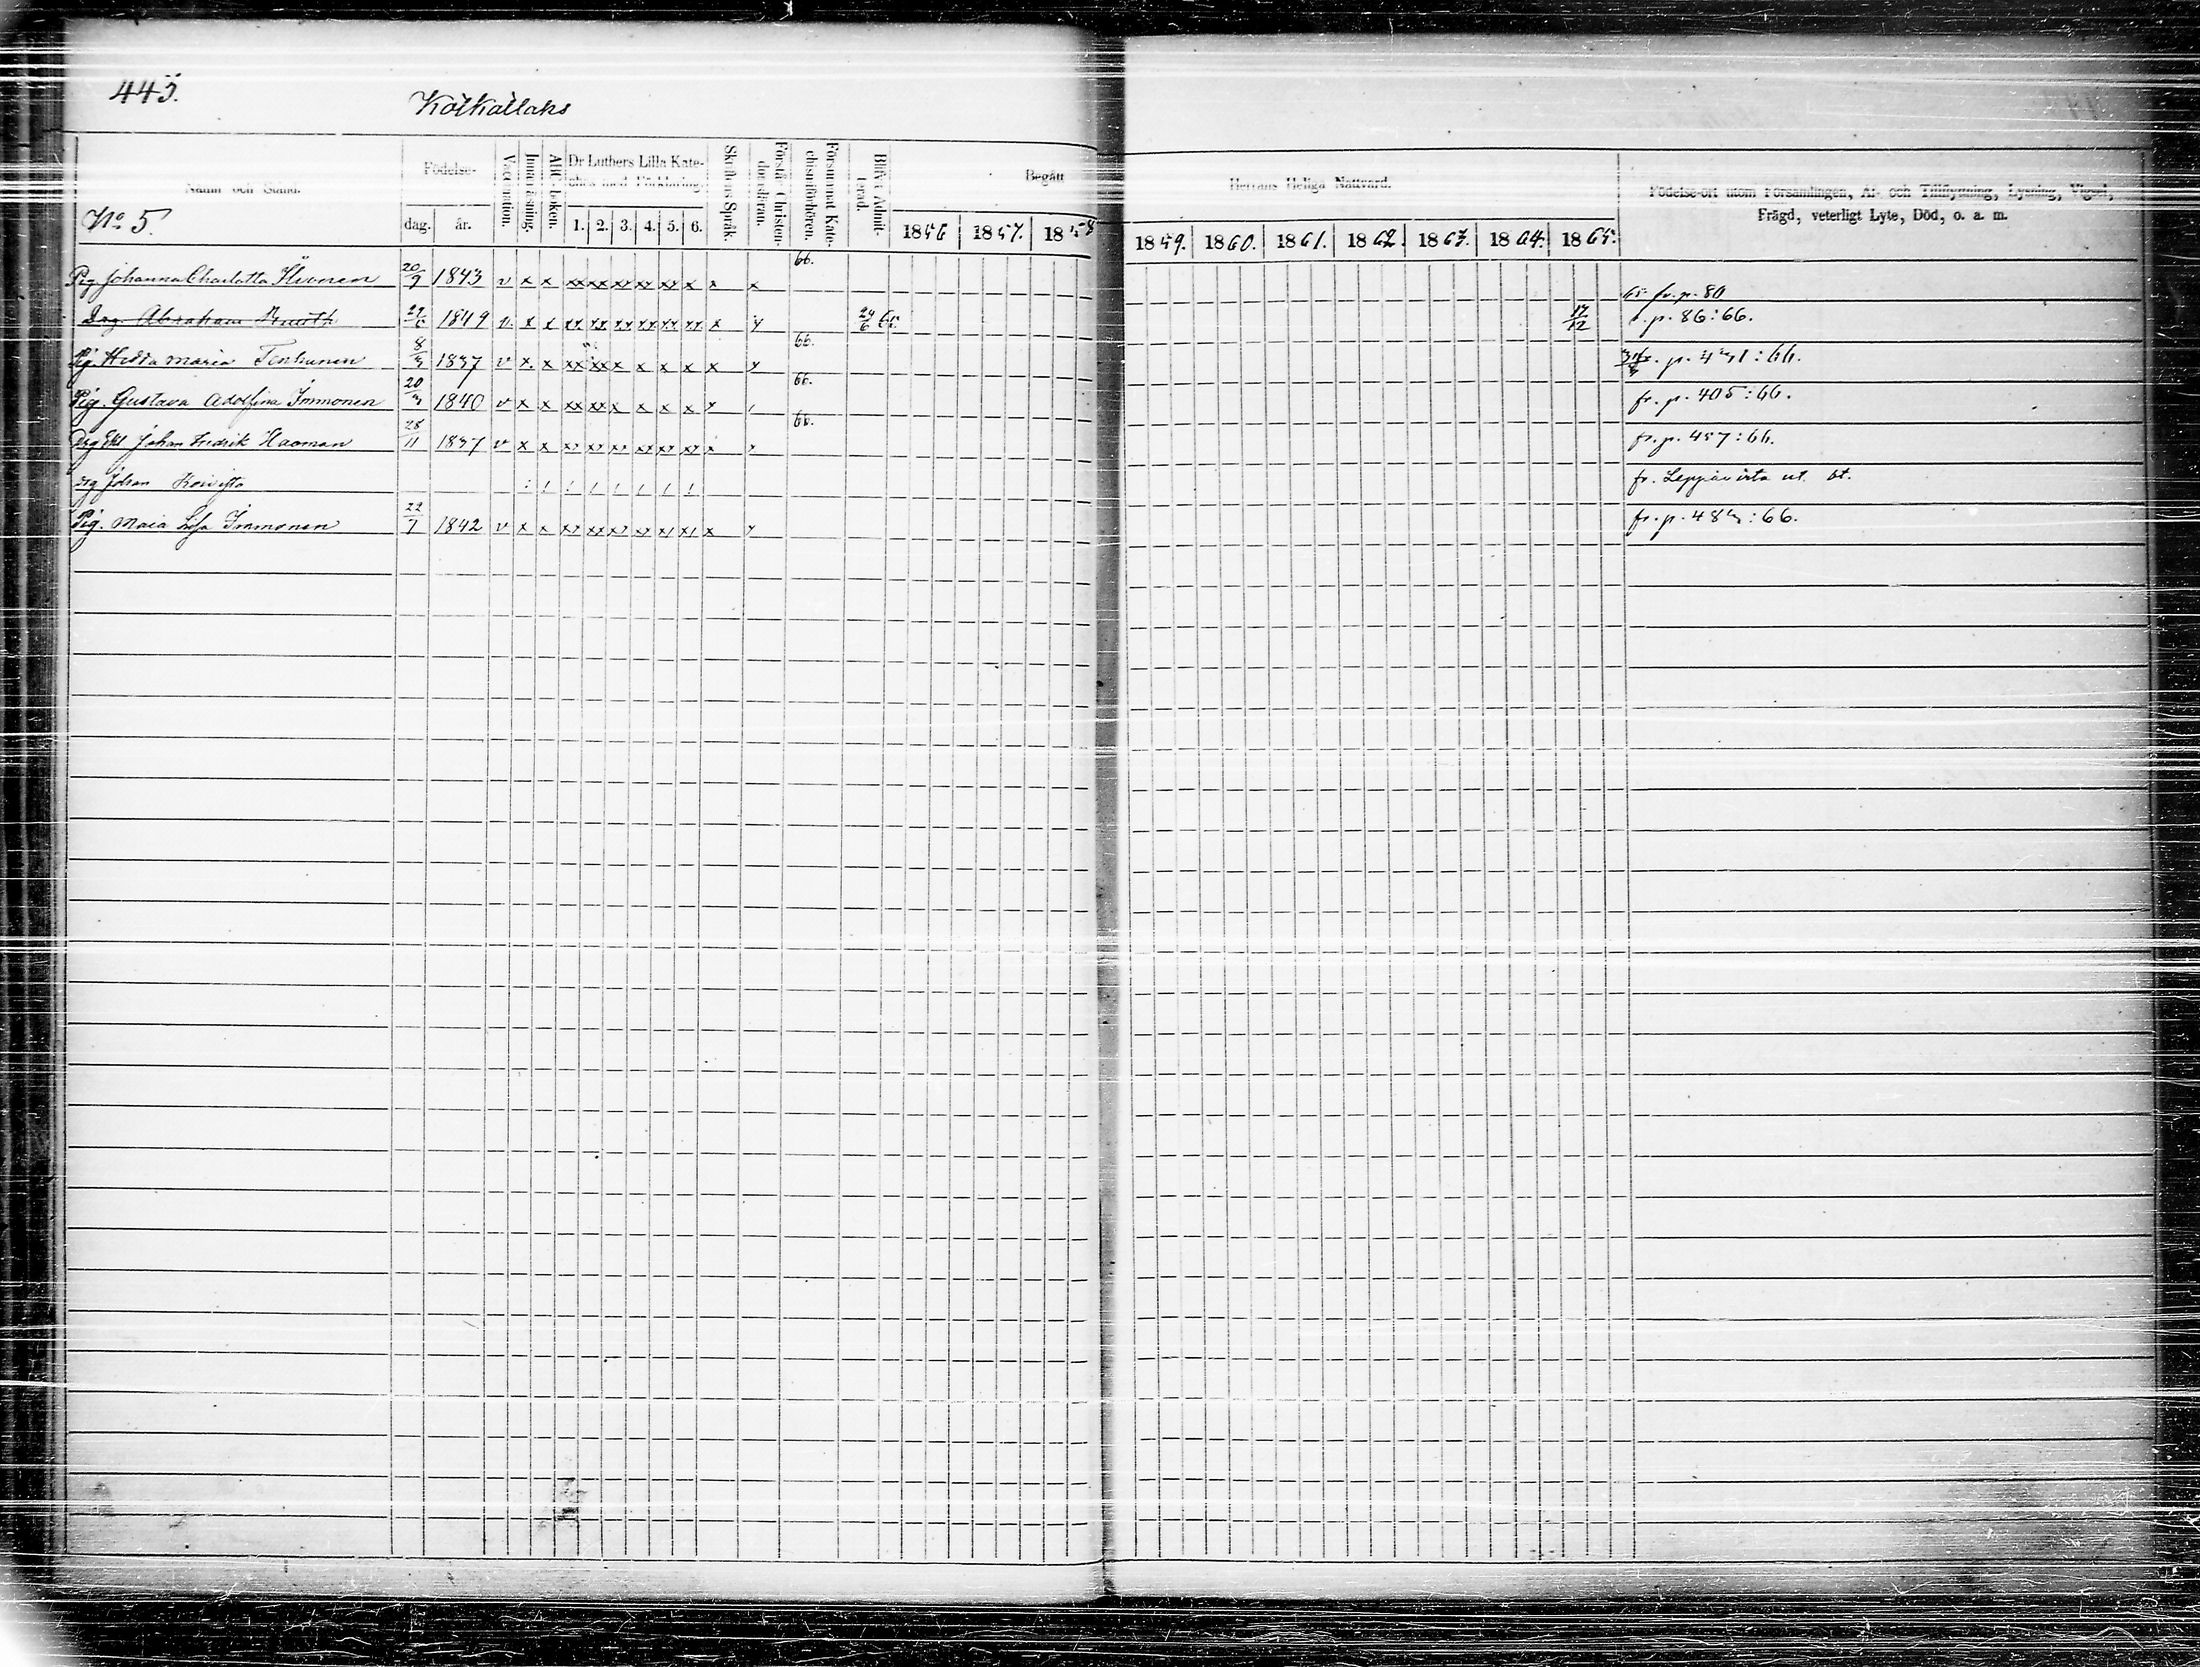 445.
Kotkatlaks
Namn och Stånd.
Födelse-
dag. år.
Vaccination.
Innanläsning.
ABC-boken.
Dr Luthers Lilla Kate-
ches med Förklaring.
1. 2. 3. 4. 5. 6.
Skriftens Språk.
Förstå Christen-
domsläran.
Försummat Kate-
chismiförhören.
Blifvit Admit-
terad.
Begått
Herrans Heliga Nattvard.
1856 1857. 1858
1859. 1860. 1861. 1862. 1863. 1864. 1865.
Födelse-ort utom Församlingen, Af- och Tillflyttning, Lysning, Vigsel,
Frägd, veterligt Lyte, Död, o. a. m.
No 5.
Pig. Johanna Charlotta 20/9 1843 v x x xx xx xx xx xx x x x 66. fr. p. 80
Drg Abraham 1849 v. x x xx xx xx xx xx xx x y 24/6 17/12 p. 86:66.
Pig. Hedda Maria Tenhunen 8/3 1837 v x. x xx xx x x x x x y 66. p. 431:66.
Pig. Gustava Adolfina Immonen 20/3 1840 v x x xx xx x x x x y 66. fr. p. 405:66.
Johan Fredrik Haoman 28/11 1837 v x x xx xx xx xx xx xx x x 66. fr. p. 457:66.
drg Johan Koivisto fr. Leppävirta ut. bt.
Pig. Maia Lisa Immonen 22/7 1842 v x x xx xx xx xx xx xx x y fr. p. 483:66.